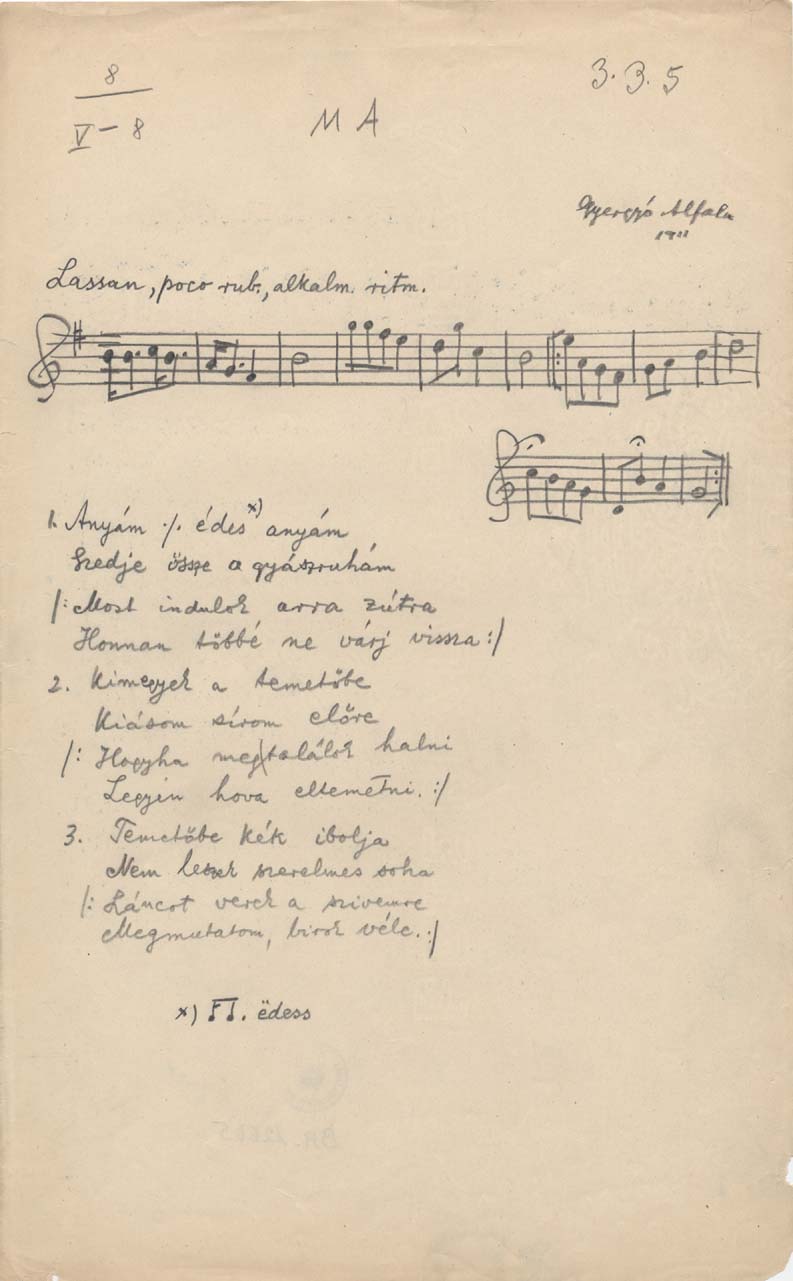 8
V - 8
M A
3. 3. 5
Gyergyó Alfalu
1911
Lassan, poco rub., alkalm. ritm.
1. Anyám ./. édes x) anyám
Szedje össze a gyászruhám
/: Most indulok arra zútra
Honnan többé ne várj vissza :/
2. Kimegyek a temetőbe
Kiásom sírom előre
/: Hogyha megtalálok halni
Legyin hova eltemetni. :/
3. Temetőbe kék ibolja
Nem leszek szerelmes soha
/: Láncot verek a szivemre
Megmutatom, birok véle. :/
x) . ëdess